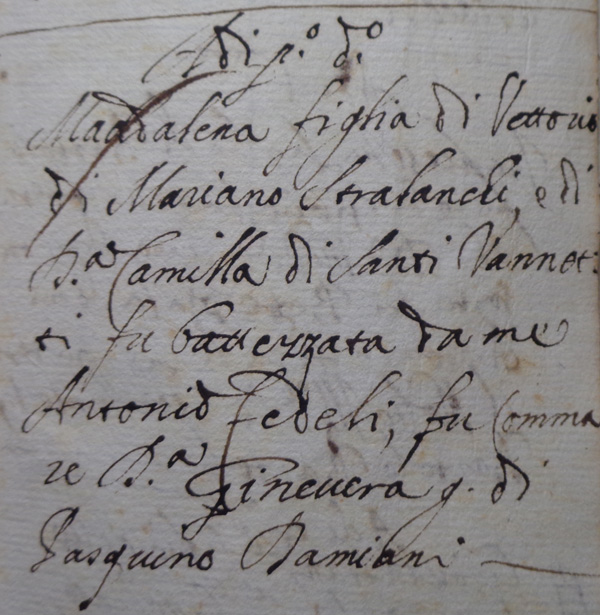 Adi p.º d.º
Maddalena figlia di Vettorio
di Mariano Stralanchi, e di
D.ª Camilla di Santi Vannet:
ti fu battezzata da me
Antonio Fedeli, fu Comma
re D.ª Ginevera g. di
Pasquino Damiani